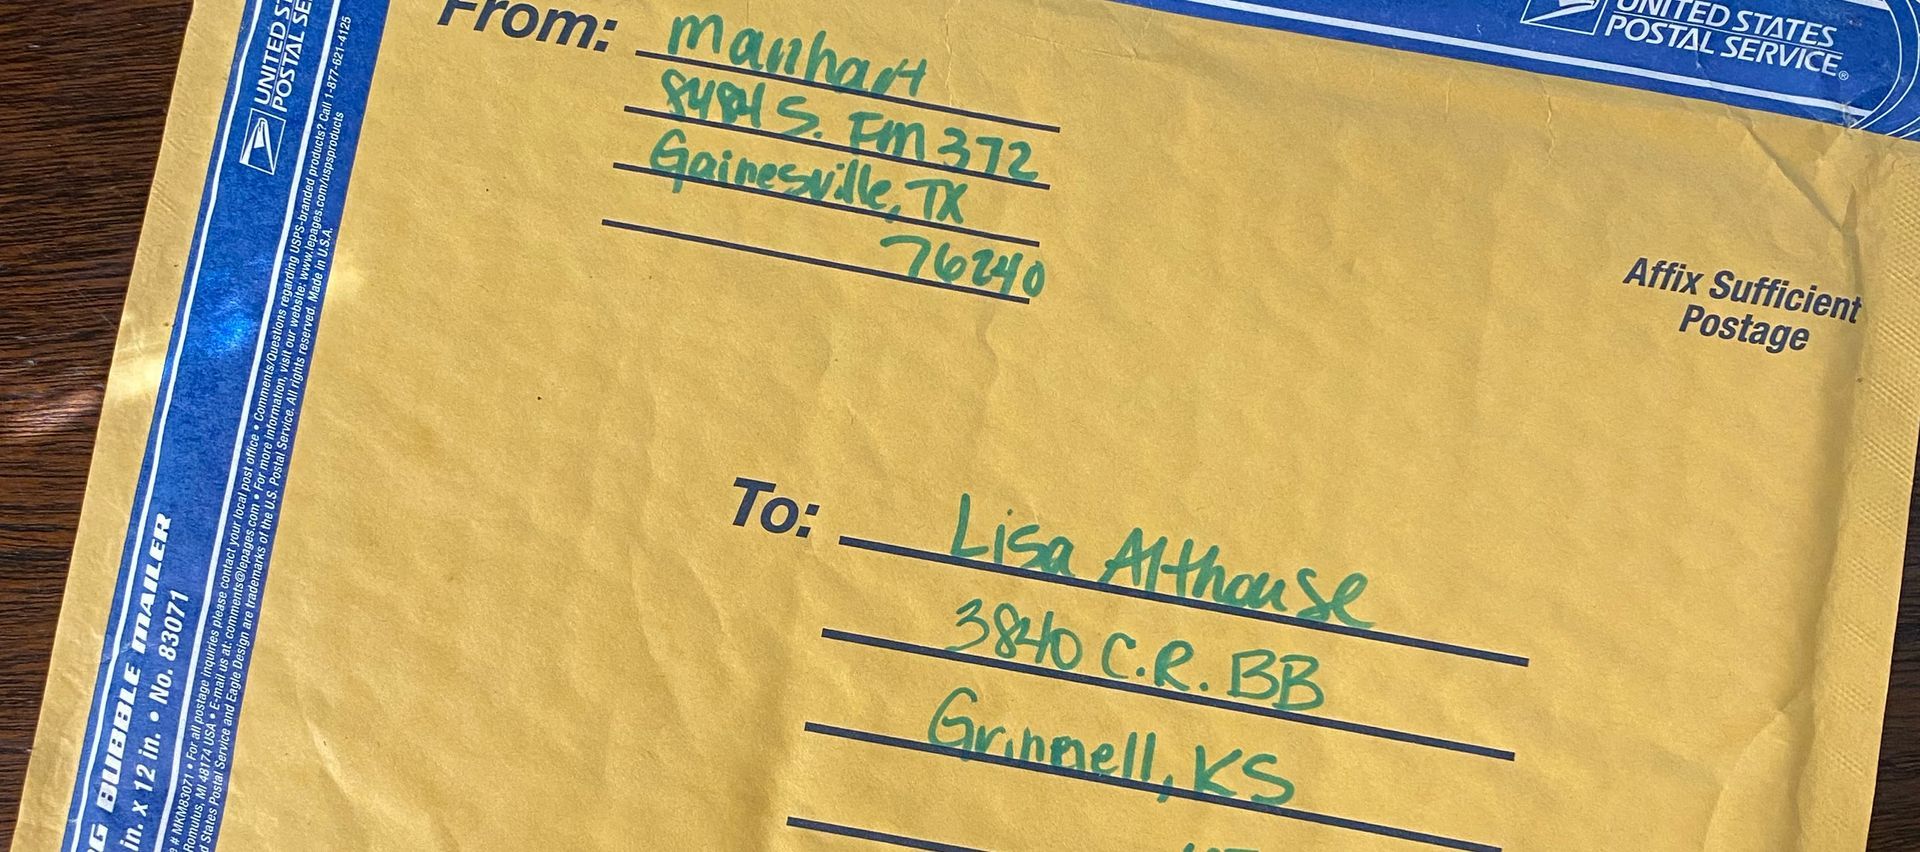 From: Manhart
8484 S. FM 372
Gainesville, TX
76240
UNITED STATES
POSTAL SERVICE®
Affix Sufficient
Postage
To: Lisa Althouse
3840 C.R. BB
Grinnell, KS
UNITED
POSTAL
BUBBLE MAILER
in. x 12 in. • No. 83071
# MKM83071 • For all postage inquiries please contact your local post office • Comments/Questions regarding USPS-branded products? Call 1-877-621-4125
Romulus, MI 48174 USA • E-mail us at: comments@lepages.com • For more information, visit our website: www.lepages.com/uspsproducts
States Postal Service and Eagle Design are trademarks of the U.S. Postal Service. All rights reserved. Made in U.S.A.